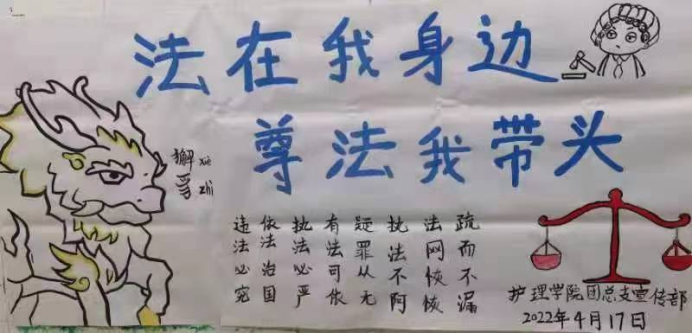 法在我身边
尊法我带头
獬豸
xiè zhì
违法必究
依法治国
执法必严
有法可依
疑罪从无
执法不阿
法网恢恢
疏而不漏
护理学院团总支宣传部
2022年4月17日